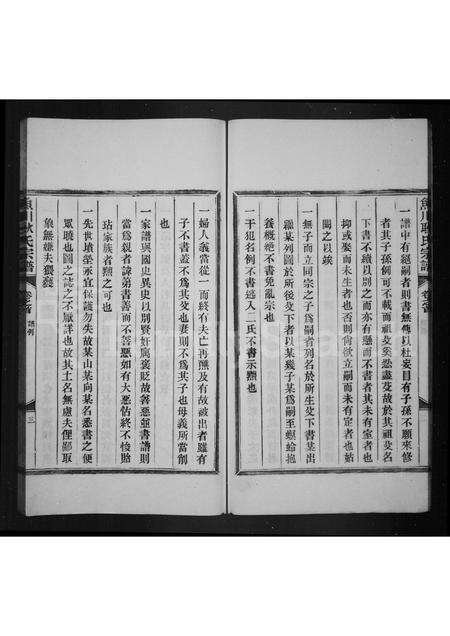 一譜中有絕嗣者則書無傳以杜妄目有子孫不願來修
者其子孫例可不載而祖父奚忍盡歿故於其祖父名
下書不續以別之而亦有懸而不書者其未有室者也
抑或娶而未生者也否則尙欲立嗣而未有定者也姑
闕之以俟
一無子而立同宗之子爲嗣者列名於所生父下書某出
繼某列圖於所後父下者以某幾子某爲嗣至螟蛉抱
養概絕不書免亂宗也
一干犯名例不書逃入二氏不書示黜也
魚川耿氏宗譜
卷首
一婦人義當從一而終有夫亡再醮及有故被出者雖有
子不書蓋不爲其父也妻則不爲其子也母義所當削
也
一家譜與國史異史以別賢奸寓褒貶故善惡並書譜則
當爲親者諱第書善而不書惡如有大惡怙終不悛貽
玷家族者黜之可也
一先世墳塋亟宜保護勿失故某山某向某名悉書之便
眾曉也圖之誌之不厭詳也故其土名無慮夫俚鄙取
象無嫌夫猥褻
魚川耿氏宗譜
卷首
譜例
三